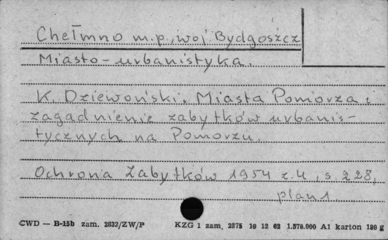 Chełmno m.p., woj Bydgoszcz
Miasto-urbanistyka.
K. Dziewoński. Miasta Pomorza i
zagadnienie zabytków urbanis-
tycznych na Pomorzu.
Ochrona Zabytków 1954 z.4, s 228,
plan 1
CWD — B-15b zam. 2832/ZW/P KZG 1 zam. 2375 10 12 62 1.570.000 A1 karton 180 g